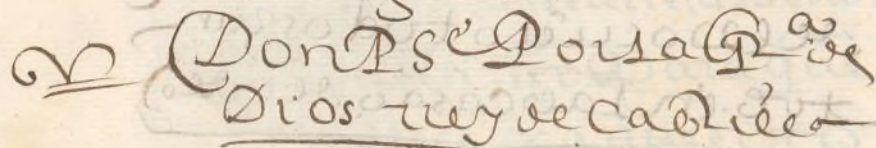 Don Phe Por la Gra de
Dios rrey de Castilla